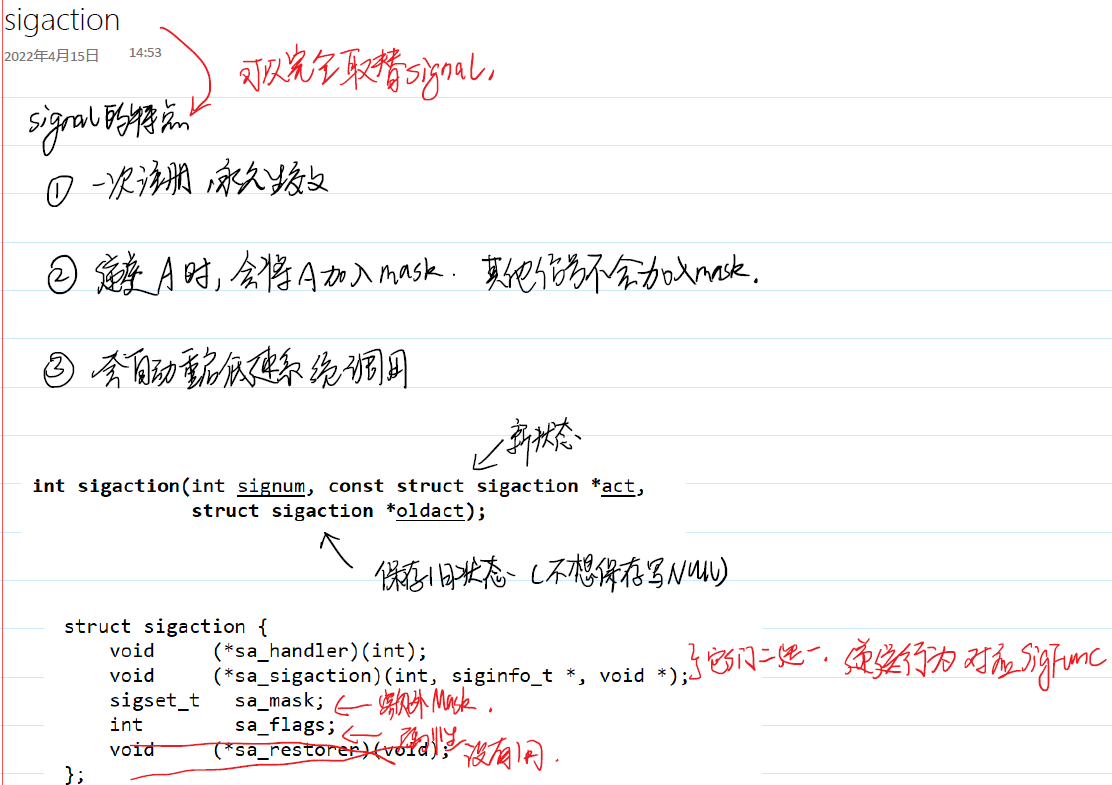 sigaction
2022年4月15日 14:53
可以完全取替signal,
signal的特点
① 一次注册,永久生效
② 递送A时,会将A加入mask. 其他信号不会加入mask.
③ 会自动重启低速系统调用
新状态
int sigaction(int signum, const struct sigaction *act,
struct sigaction *oldact);
保存旧状态 (不想保存写NULL)
struct sigaction {
void (*sa_handler)(int);
void (*sa_sigaction)(int, siginfo_t *, void *); 它们二选一. 递送行为 对应SigFunc
sigset_t sa_mask; 额外Mask.
int sa_flags; 属性
void (*sa_restorer)(void); 没有用.
};